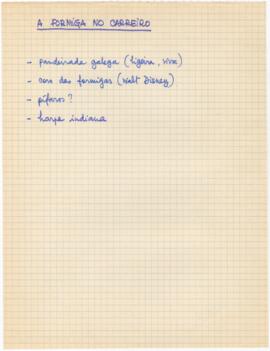 A FORMIGA NO CARREIRO
- pandeirada galega (ligeira, viva)
- coro das formigas (Walt Disney)
- pífaros?
- harpa indiana